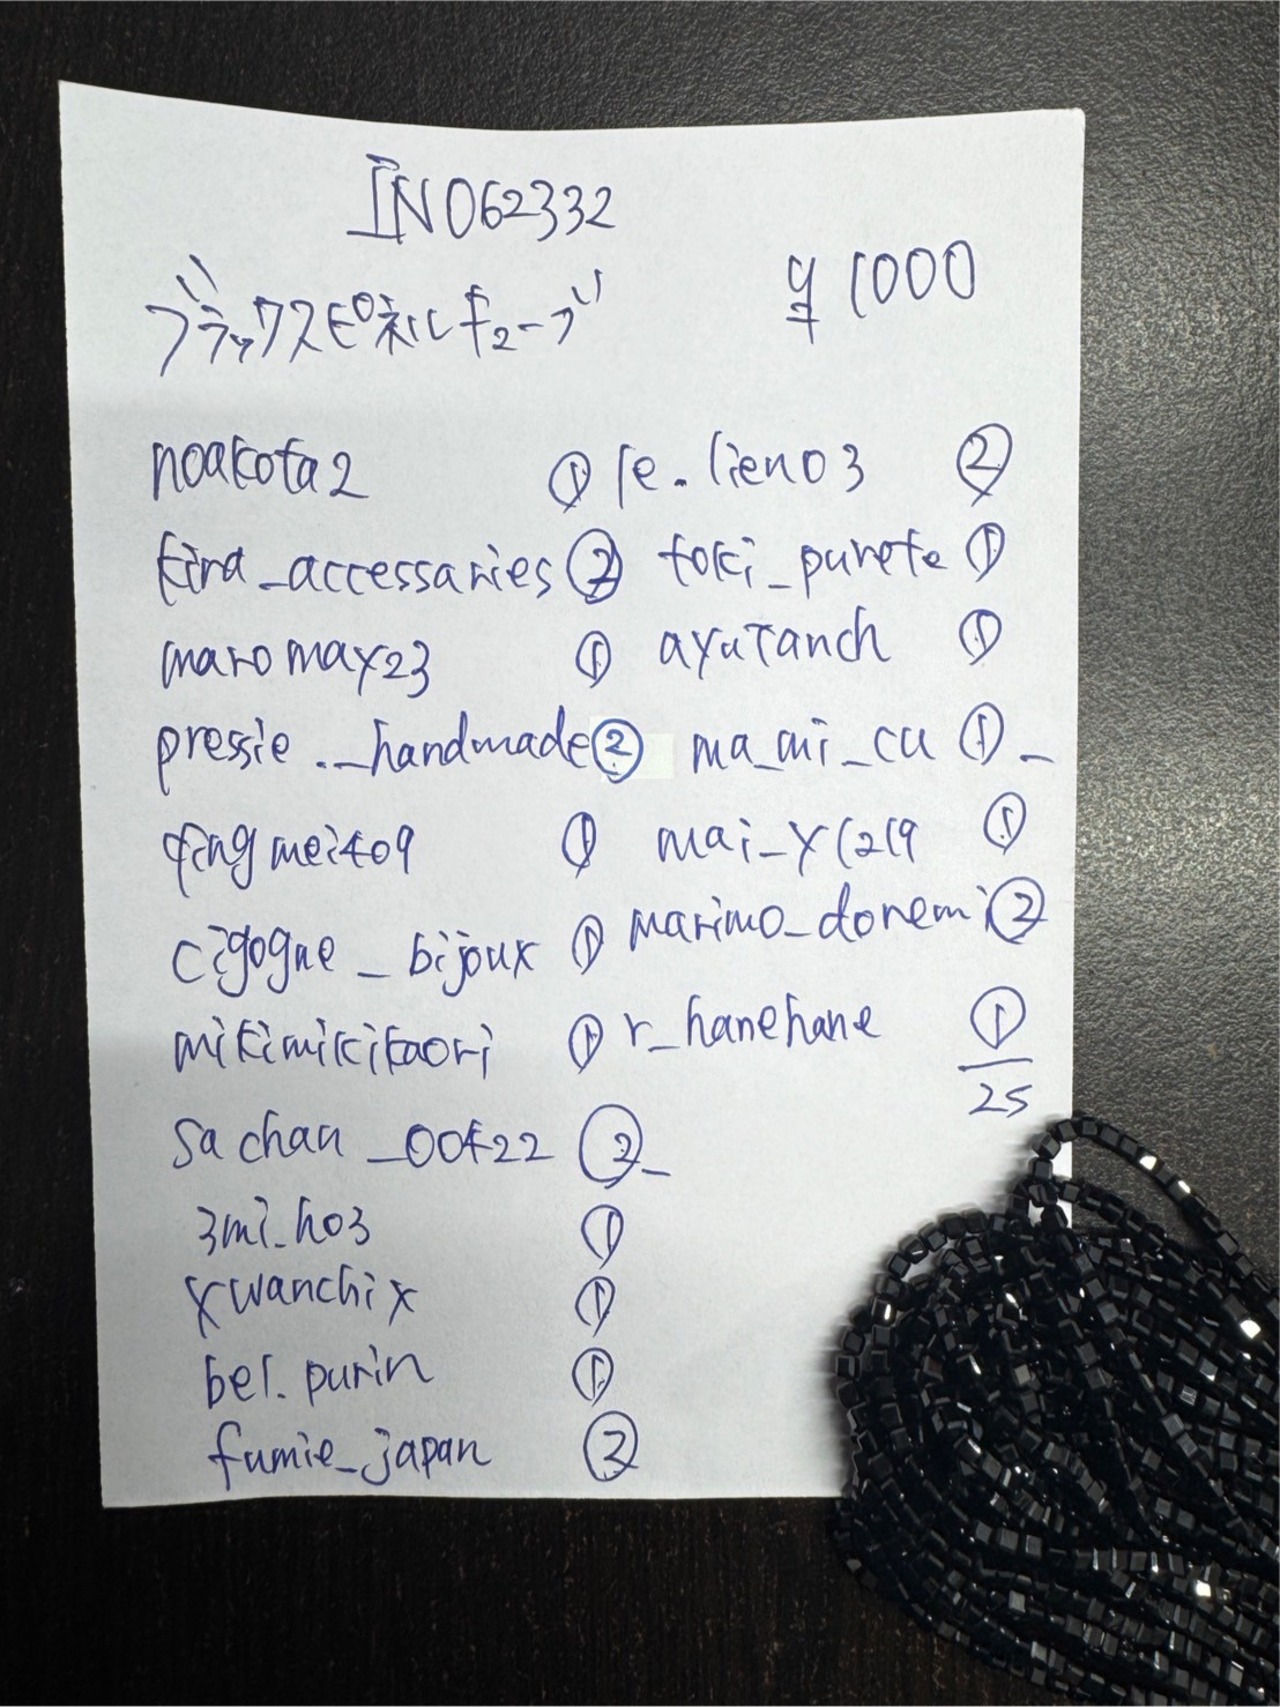 IN062332
¥1000
ブラックスピネルチューブ
noakota2 ① le.lien03 ②
kira_accessaries ② toki_purete ①
maromay23 ① ayutanch ①
pressie._handmade ② ma_mi_cu ①_
qingmei409 ① mai_y1219 ①
cigogne_bijoux ① marimo_doremi ②
mikimikikaori ① r_hanehane ①
25
sachan_00422 ②_
3mi_ho3 ①
xwanchix ①
bel.purin ①
fumie_japan ②